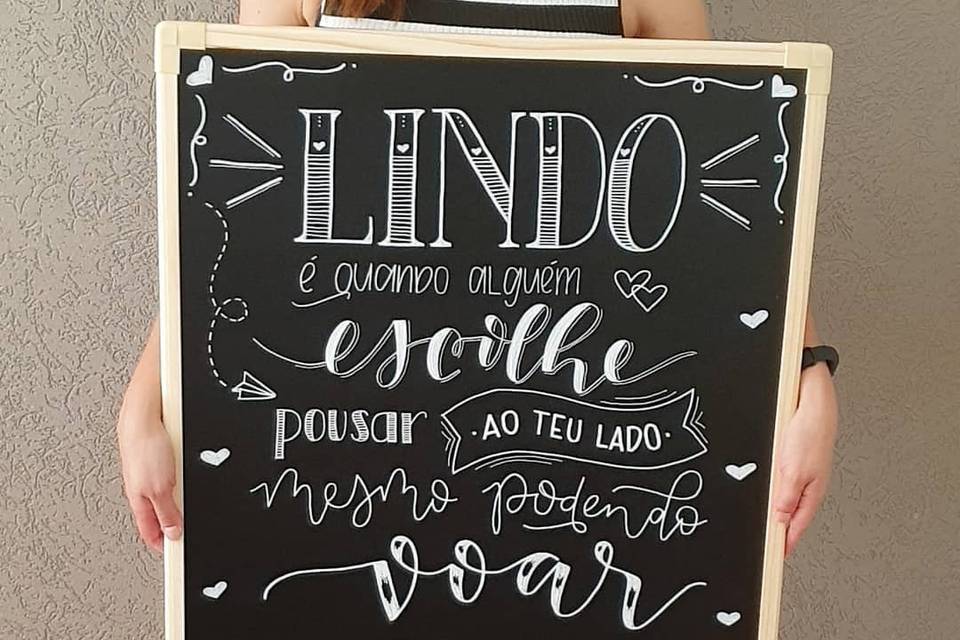 LINDO
é quando alguém
escolhe
pousar AO TEU LADO
mesmo podendo
voar